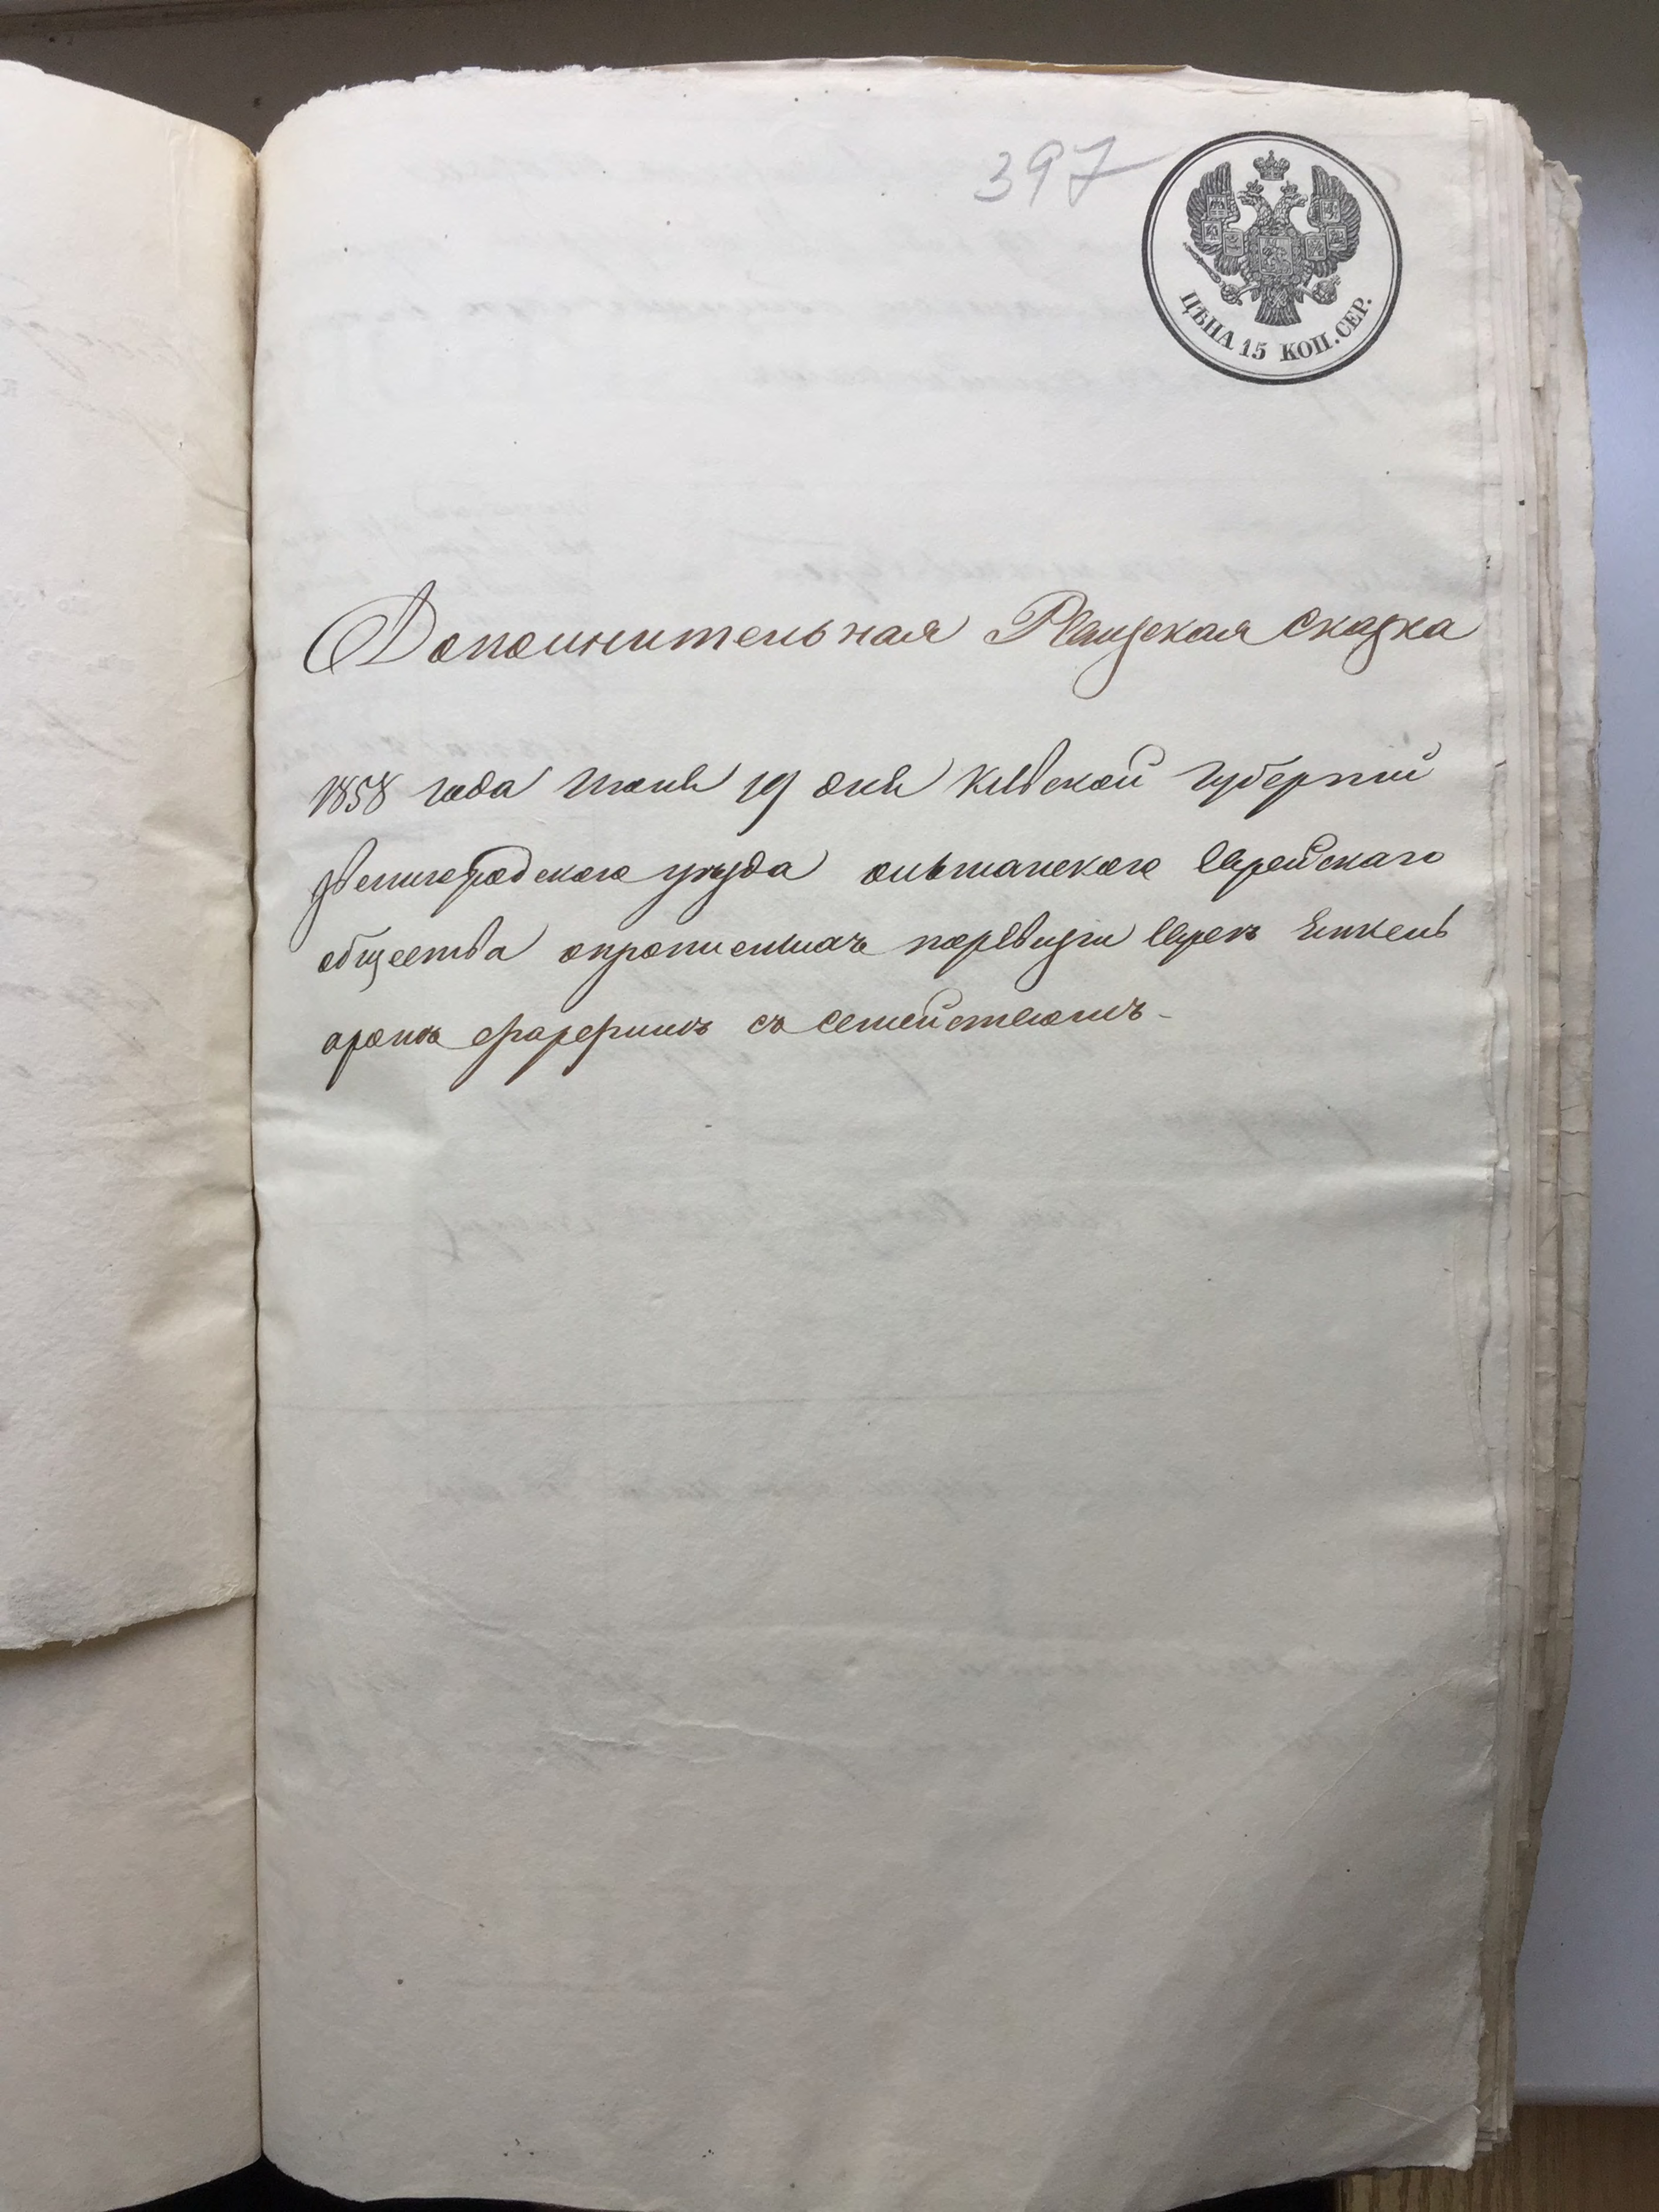 397
ЦѢНА 15 КОП. СЕР.
Дополнительная Ревизская сказка
1858 года Июня 19 дня Киевской Губернии
звенигородского уезда ольшанского еврейскаго
общества о пропис по ревизии еврея Янкель
арон с семейством